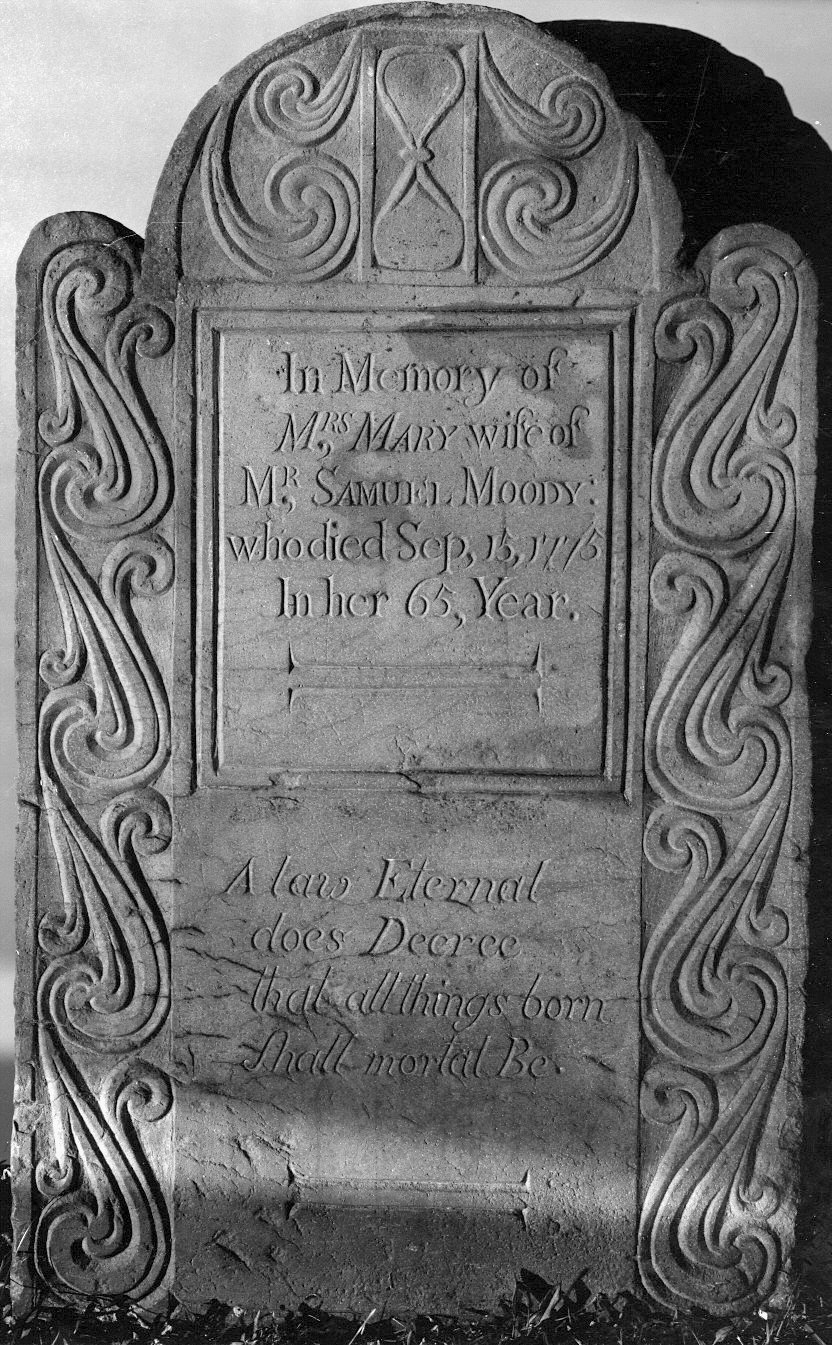 In Memory of
Mrs, MARY wife of
Mr, SAMUEL MOODY:
who died Sep, 15, 1775
In her 65, Year.
A law Eternal
does Decree
that all things born
shall mortal Be.